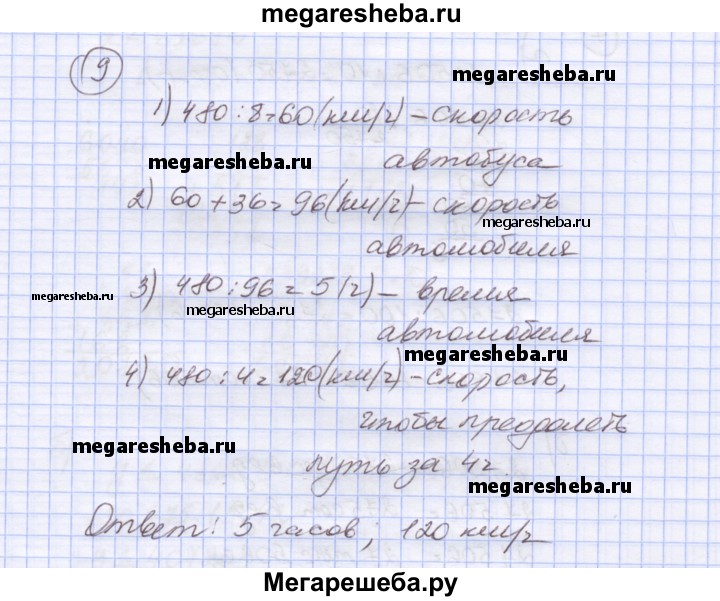 megaresheba.ru
9
megaresheba.ru
1) 480:8=60(км/ч)-скорость
megaresheba.ru
автобуса
2) 60+36=96(км/ч)-скорость
megaresheba.ru
автомобиля
3) 480:96=5(ч)- время
megaresheba.ru
megaresheba.ru
автомобиля
megaresheba.ru
4) 480:4=120(км/ч)-скорость,
чтобы преодолеть
megaresheba.ru
путь за 4ч.
megaresheba.ru
Ответ: 5 часов; 120 км/ч
Мегарешеба.ру